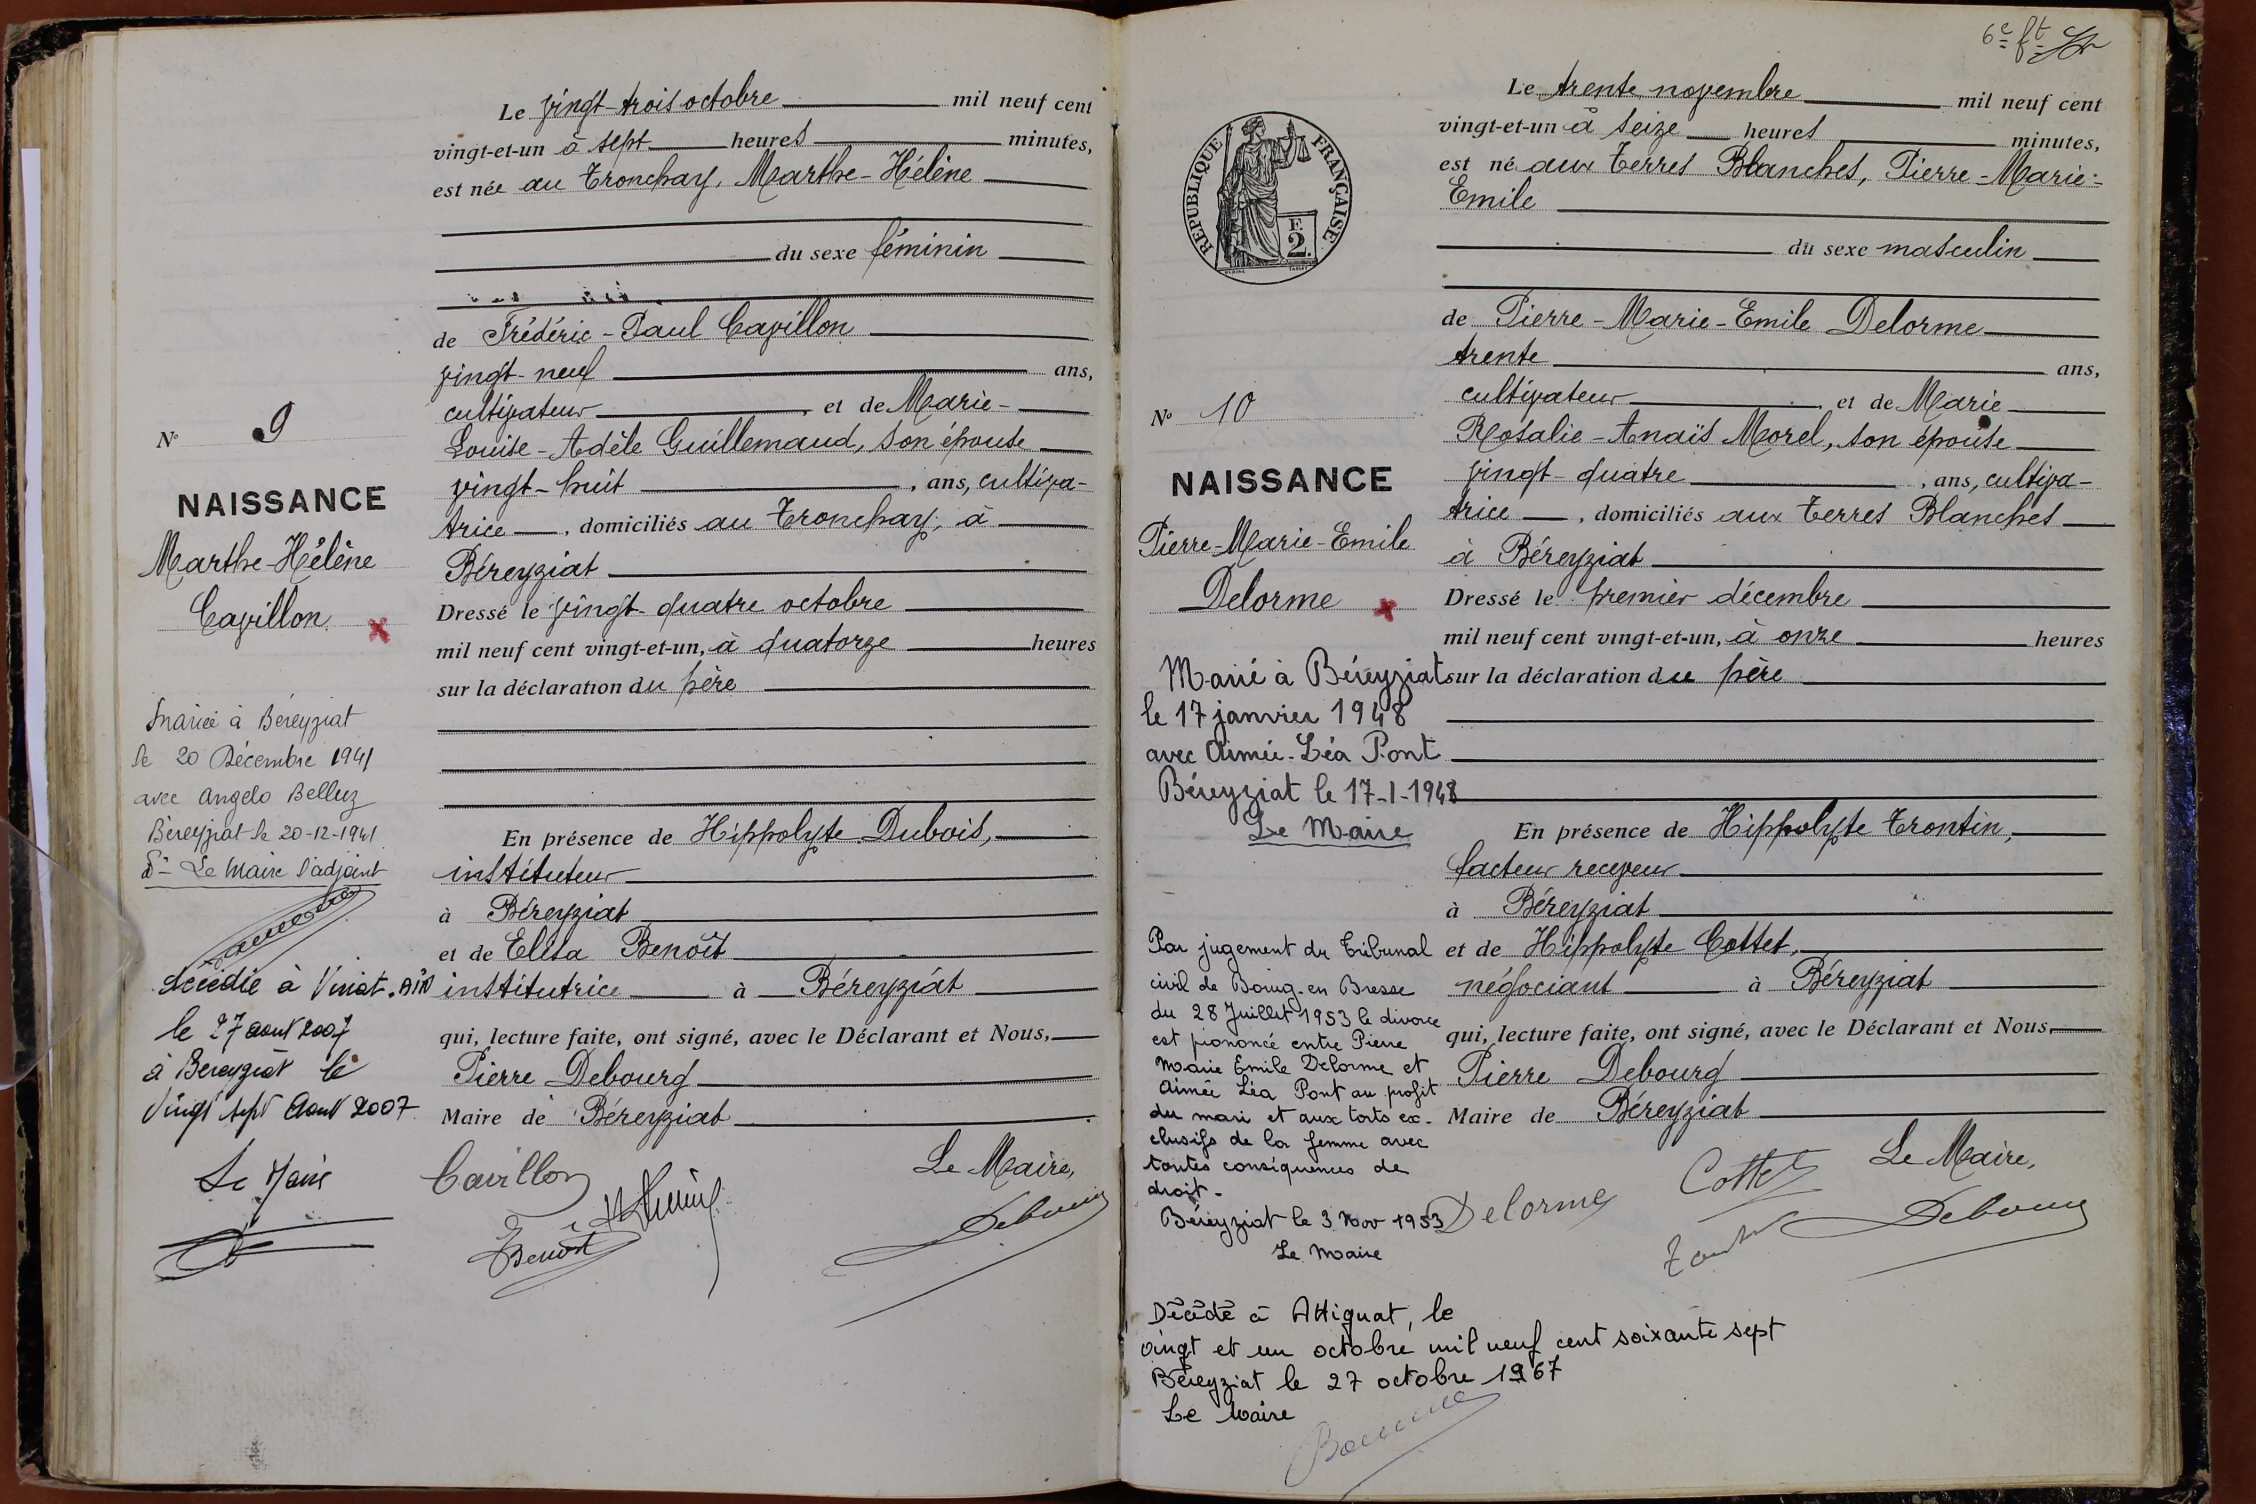 Le vingt-trois octobre mil neuf cent
vingt-et-un à sept heures minutes,
est née au Tronchay, Marthe-Hélène
du sexe féminin
de Frédéric-Paul Cavillon
vingt-neuf ans,
cultivateur et de Marie-
Louise-Adèle Guillemaud, son épouse
vingt-huit , ans, cultiva-
trice , domiciliés au Tronchay, à
Béreyziat
Dressé le vingt-quatre octobre
mil neuf cent vingt-et-un, à quatorze heures
sur la déclaration du père
En présence de Hippolyte Dubois,
instituteur
à Béreyziat
et de Elisa Benoît
institutrice à Béreyziat
qui, lecture faite, ont signé, avec le Déclarant et Nous,
Pierre Debourg
Maire de Béreyziat
Le Maire,
Cavillon
Benoît
Debourg
No 9
NAISSANCE
Marthe-Hélène
Cavillon
Mariée à Béreyziat
le 20 Décembre 1941
avec Angelo Belluz
Béreyziat le 20-12-1941
Le Maire l'adjoint
décédée à Viriat. AIN
le 27 aout 2007
à Béreyziat le
Vingt sept Aout 2007
Le Maire
6e ft
Le trente novembre mil neuf cent
vingt-et-un à seize heures minutes,
est né aux Terres Blanches, Pierre-Marie-
Emile
du sexe masculin
de Pierre-Marie-Emile Delorme
trente ans,
cultivateur , et de Marie
Rosalie-Anaïs Morel, son épouse
vingt-quatre , ans, cultiva-
trice , domiciliés aux Terres Blanches
à Béreyziat
Dressé le premier décembre
mil neuf cent vingt-et-un, à onze heures
sur la déclaration du père
En présence de Hippolyte Trontin,
facteur receveur
à Béreyziat
et de Hippolyte Cottet,
négociant à Béreyziat
qui, lecture faite, ont signé, avec le Déclarant et Nous,
Pierre Debourg
Maire de Béreyziat
Le Maire,
Cottet
Delorme
Debourg
RÉPUBLIQUE FRANÇAISE
E
2.
No 10
NAISSANCE
Pierre-Marie-Emile
Delorme
Marié à Béreyziat
le 17 janvier 1948
avec Aimée-Léa Pont
Béreyziat le 17-1-1948
Le Maire
Par jugement du Tribunal
civil de Bourg-en Bresse
du 28 Juillet 1953 le divorce
est prononcé entre Pierre
Marie Emile Delorme et
Aimée Léa Pont au profit
du mari et aux torts ex-
clusifs de la femme avec
toutes conséquences de
droit-
Béreyziat le 3 Nov 1953
Le Maire
Décédé à Attignat, le
vingt et un octobre mil neuf cent soixante sept
Béreyziat le 27 octobre 1967
Le Maire